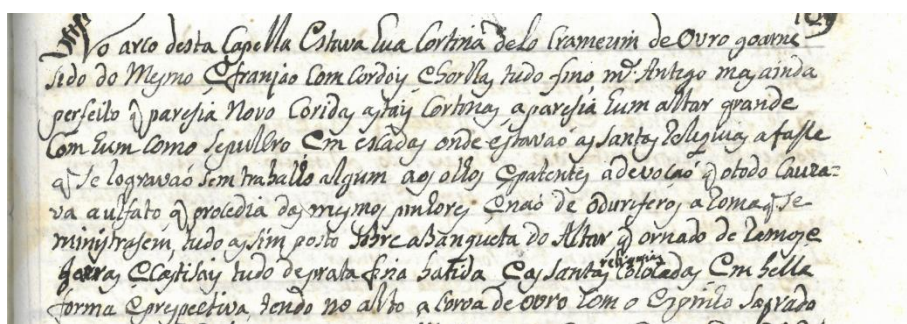 No arco desta Capella Estava hua Cortina de lo Carmezim de Ouro goarne
sido do Mesmo E franjão Com Cordois E borllas, tudo fino mto Antigo mas ainda
perfeito q paresia Novo Coridas as tais Cortinas aparesia hum altar grande
Com hum Como Sepulcro Em escadas onde estavão as Santas Reliquias a fasse
q Se logravão Sem trabalho algum aos olhos E patentes a devoção q o todo Cauza=
va aulfato q procedia das mesmos E não de oduriferos aromas q Se
ministrasem, tudo assim posto Sobre a Banqueta do Altar q ornado de Ramos e
Jarras E Castisais tudo de prata fina batida E as Santas reliquias Colocadas Em bella
forma E prespectiva, tendo no alto a Coroa de Ouro Com o Espirito Sagrado